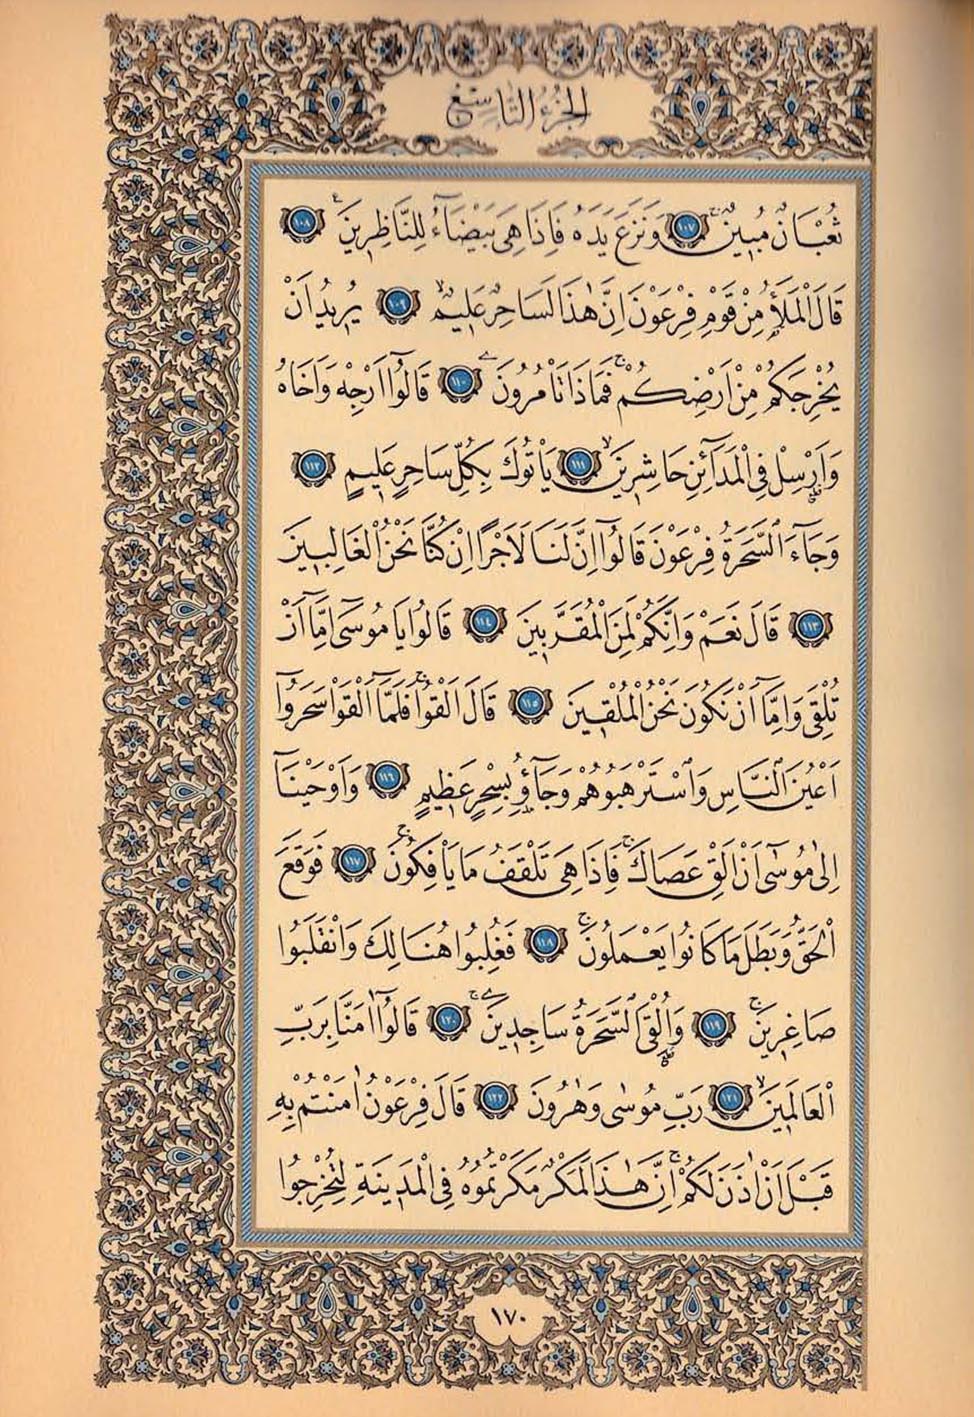 الجزء التاسع
ثُعْبَانٌ مُبِينٌۚ ﴿١٠٧﴾ وَنَزَعَ يَدَهُ فَاِذَا هِىَ بَيْضَٓاءُ لِلنَّاظِرِينَ۟ ﴿١٠٨﴾
قَالَ الْمَلَأُ مِنْ قَوْمِ فِرْعَوْنَ اِنَّ هٰذَا لَسَاحِرٌ عَلِيمٌۙ ﴿١٠٩﴾ يُرِيدُ اَنْ
يُخْرِجَكُمْ مِنْ اَرْضِكُمْۚ فَمَاذَا تَأْمُرُونَ ﴿١١٠﴾ قَالُٓوا اَرْجِهْ وَاَخَاهُ
وَاَرْسِلْ فِى الْمَدَٓائِنِ حَاشِرِينَۙ ﴿١١١﴾ يَأْتُوكَ بِكُلِّ سَاحِرٍ عَلِيمٍ ﴿١١٢﴾
وَجَٓاءَ السَّحَرَةُ فِرْعَوْنَ قَالُٓوا اِنَّ لَنَا لَاَجْرًا اِنْ كُنَّا نَحْنُ الْغَالِبِينَ
﴿١١٣﴾ قَالَ نَعَمْ وَاِنَّكُمْ لَمِنَ الْمُقَرَّبِينَ ﴿١١٤﴾ قَالُوا يَا مُوسٰٓى اِمَّٓا اَنْ
تُلْقِىَ وَاِمَّٓا اَنْ نَكُونَ نَحْنُ الْمُلْقِينَ ﴿١١٥﴾ قَالَ اَلْقُواۚ فَلَمَّٓا اَلْقَوْا سَحَرُٓوا
اَعْيُنَ النَّاسِ وَاسْتَرْهَبُوهُمْ وَجَٓاؤُ بِسِحْرٍ عَظِيمٍ ﴿١١٦﴾ وَاَوْحَيْنَٓا
اِلٰى مُوسٰٓى اَنْ اَلْقِ عَصَاكَۚ فَاِذَا هِىَ تَلْقَفُ مَا يَأْفِكُونَۚ ﴿١١٧﴾ فَوَقَعَ
الْحَقُّ وَبَطَلَ مَا كَانُوا يَعْمَلُونَۚ ﴿١١٨﴾ فَغُلِبُوا هُنَالِكَ وَانْقَلَبُوا
صَاغِرِينَۚ ﴿١١٩﴾ وَاُلْقِىَ السَّحَرَةُ سَاجِدِينَۚ ﴿١٢٠﴾ قَالُٓوا اٰمَنَّا بِرَبِّ
الْعَالَمِينَۙ ﴿١٢١﴾ رَبِّ مُوسٰى وَهٰرُونَ ﴿١٢٢﴾ قَالَ فِرْعَوْنُ اٰمَنْتُمْ بِهِ
قَبْلَ اَنْ اٰذَنَ لَكُمْۚ اِنَّ هٰذَا لَمَكْرٌ مَكَرْتُمُوهُ فِى الْمَدِينَةِ لِتُخْرِجُوا
١٧٠